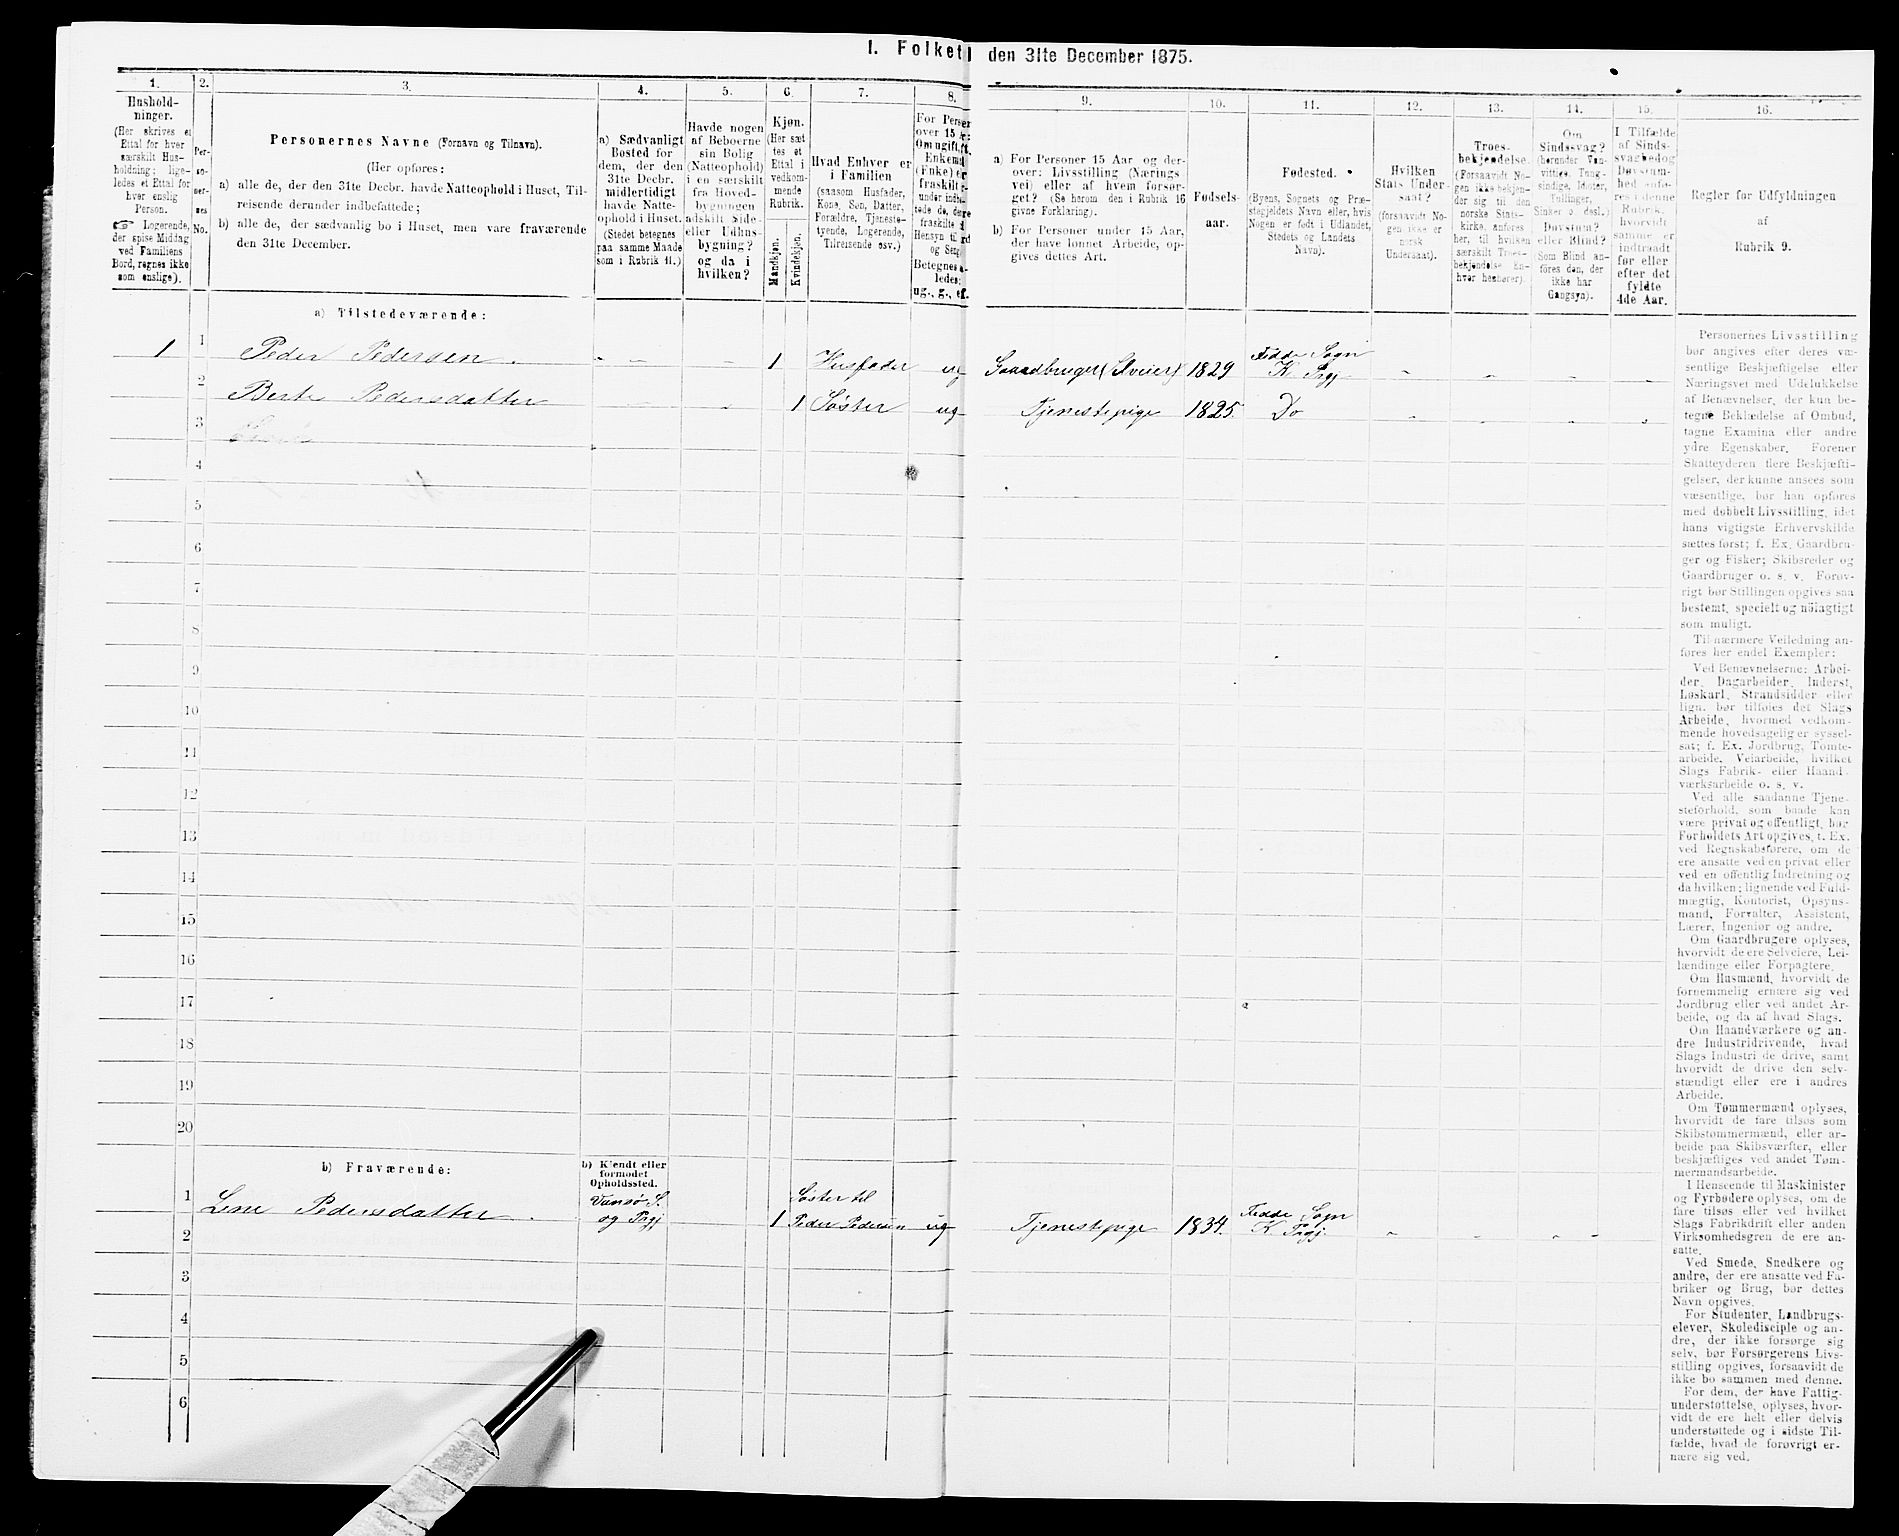 I. Folket
den 31te December 1875.
1.
2.
3.
4.
5.
6.
7.
8.
9.
10.
11.
12.
13.
14.
15.
16.
Hushold-
ninger.
(Her skrives et
Ettal for hver
særskilt Hus-
holdning; lige-
ledes et Ettal for
hver enslig
Person.
☞ Logerende,
der spise Middag
ved Familiens
Bord, regnes ikke
som enslige).
Per-
so-
ner-
nes
No.
Personernes Navne (Fornavn og Tilnavn).
(Her opføres:
a) alle de, der den 31te Decbr. havde Natteophold i Huset, Til-
reisende derunder indbefattede;
b) alle de, der sædvanlig bo i Huset, men vare fraværende
den 31te December.
a) Sædvanligt
Bosted for
dem, der den
31te Decbr.
midlertidigt
havde Natte-
ophold i Huset.
(Stedet betegnes
paa samme Maade
som i Rubrik 11.)
Havde nogen
af Beboerne
sin Bolig
(Natteophold)
i en særskilt
fra Hoved-
bygningen
adskilt Side-
eller Udhus-
bygning?
og da i
hvilken?
Kjøn.
(Her sæt
tes et
Ettal i
vedkom-
mende
Rubrik.
Mandkjøn.
Kvindekjøn.
Hvad Enhver er
i Familien
(saasom Husfader,
Kone, Søn, Datter,
Forældre, Tjeneste-
tyende, Logerende,
Tilreisende osv.)
For Perser
over 15
Om ugift,
Enkemd
(Enke) er
fraskilt
under indbe-
tede de, der
fraskilte
Hensyn til
og Seng
Betegnes
ledes:
ug., g., e.
a) For Personer 15 Aar og der-
over: Livsstilling (Nærings
vei) eller af hvem forsør-
get? (Se herom den i Rubrik 16
givne Forklaring).
b) For Personer under 15 Aar,
der have lønnet Arbeide, op-
gives dettes Art.
Fødsels-
aar.
Fødested.
(Byens, Sognets og Præ-
stegjeldets Navn eller, hvis
Nogen er født i Udlandet,
Stedets og Landets
Navn).
Hvilken
Stats Under-
saat?
(forsaavidt No-
gen ikke er
norsk
Undersaat).
Troes-
bekjendelse.
(Forsaavidt No-
gen ikke bekjen-
der sig til den
norske Stats-
kirke, anføres
her, til hvilken
særskilt Troes-
bekjendelse En-
hver henhører).
Om
Sindssvag?
(herunder Van-
vittige, Tung-
sindige, Idioter,
Tullinger,
Sinker o desl.)
Døvstum?
eller Blind?
(Som Blind an-
føres den, der
ikke har
Gangsyn).
I Tilfælde
af Sinds-
svaghed og
Døvstum-
hed anfø-
res i denne
Rubrik,
hvorvidt
samme er
indtraadt
før eller
efter det
fyldte
4de Aar.
Regler for Udfyldningen
af
Rubrik 9.
a) Tilstedeværende:
1 1 Peder Pedersen 1 Husfader ug Gaardbruger (Selveier) 1829 Fedde Sogn
K. Prgj
2 Berte Pedersdatter 1 Søster ug Tjenestepige 1825. Do
3
4
5
6
7
8
9
10
11
12
13
14
15
16
17
18
19
20
b) Fraværende:
b) Kjendt eller
formodet
Opholdssted.
1 Lene Pedersdatter Vansø S.
og Prgj 1 Søster til
Peder Pedersen ug Tjenestepige 1834. Fedde Sogn
K Prgj.
2
3
4
5
6
Personernes Livsstilling
bør angives efter deres væ-
sentlige Beskjæftigelse eller
Næringsvei med Udelukkelse
af Benævnelser, der kun be-
tegne Beklædelse af Ombud,
tagne Examina eller andre
ydre Egenskaber. Forener
Skatteyderen flere Beskjæfti-
gelser, der kunne ansees som
væsentlige, bør han opføres
med dobbelt Livsstilling, idet
hans vigtigste Erhvervskilde
sættes først; f. Ex. Gaardbru-
ger og Fisker; Skibsreder og
Gaardbruger o. s. v. Forøv-
rigt bør Stillingen opgives saa
bestemt, specielt og nöiagtigt
som muligt.
Til nærmere Veiledning an-
føres her endel Exempler:
Ved Benævnelserne: Arbei-
der, Dagarbeider, Inderst,
Løskarl, Strandsidder eller
lign. bør tilføies det Slags
Arbeide, hvormed vedkom-
mende hovedsagelig er syssel-
sat; f. Ex. Jordbrug, Tomte-
arbeide, Veiarbeide, hvilket
Slags Fabrik- eller Haand-
værksarbeide o. s. v.
Ved alle saadanne Tjene-
steforhold, som baade kan
være privat og offentligt, bør
Forholdets Art opgives, t. Ex.
ved Regnskabsførere, om de
ere ansatte ved en privat eller
ved en offentlig Indretning og
da hvilken; lignende ved Fuld-
mægtig, Kontorist, Opsyns-
mand, Forvalter, Assistent,
Lærer, Ingeniør og andre.
Om Gaardbrugere oplyses,
hvorvidt de ere Selveiere, Lei-
lændinge eller Forpagtere.
Om Husmænd, hvorvidt de
fornemmelig ernære sig ved
Jordbrug eller ved andet Ar-
beide, og da af hvad Slags.
Om Haandværkere og an-
dre Industridrivende, hvad
Slags Industri de drive, samt
hvorvidt de drive den selv-
stændigt eller ere i andres
Arbeide.
Om Tømmermænd oplyses,
hvorvidt de fare tilsøs som
Skibstømmermænd, eller ar-
beide paa Skibsværfter, eller
beskjæftiges ved andet Tøm-
mermandsarbeide.
I Henseende til Maskinister
og Fyrbødere oplyses, om de
fare tilsøs eller ved hvilket
Slags Fabrikdrift eller anden
Virksomhedsgren de ere an-
satte.
Ved Smede, Snedkere og
andre, der ere ansatte ved Fa-
briker og Brug, bør dettes
Navn opgives.
For Studenter, Landbrugs-
elever, Skoledisciple og an-
dre, der ikke forsørge sig
selv, bør Forsørgerens Livs-
stilling opgives, forsaavidt de
ikke bo sammen med denne.
For dem, der have Fattig-
understøttelse, oplyses, hvor-
vidt de ere helt eller delvis
understøttede og i sidste Til-
fælde, hvad de forøvrigt er-
nære sig ved.